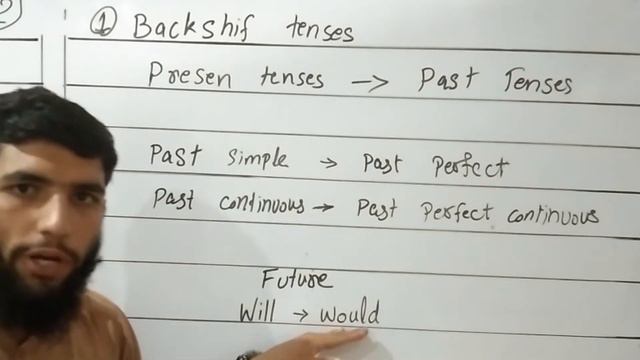 2
① Backshif tenses
Presen tenses -> Past Tenses
Past simple -> Past Perfect
Past continuous -> Past Perfect continuous
Future
Will -> would